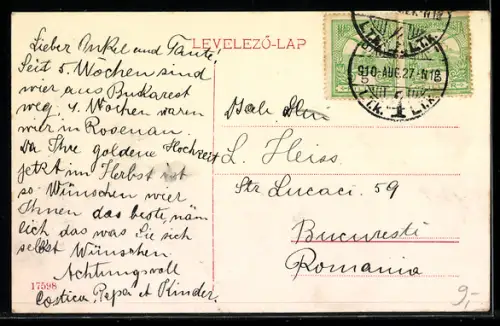 LEVELEZŐ-LAP
Lieber Onkel und Tante!
Seit 5. Wochen sind
wier aus Bukarest
weg. 4 Wochen waren
wier in Rosenau.
Da Ihre goldene Hochzeit
jetzt im Herbst ist
so Wünschen wier
Ihnen das beste, näm
lich das was Sie sich
selbst Wünschen.
Achtungsvoll
Costica, Papa et Kinder.
17598
910-AUG.27-N18
L. Heiss
Str Lucaci 59
Bucuresti
Romania
9,-